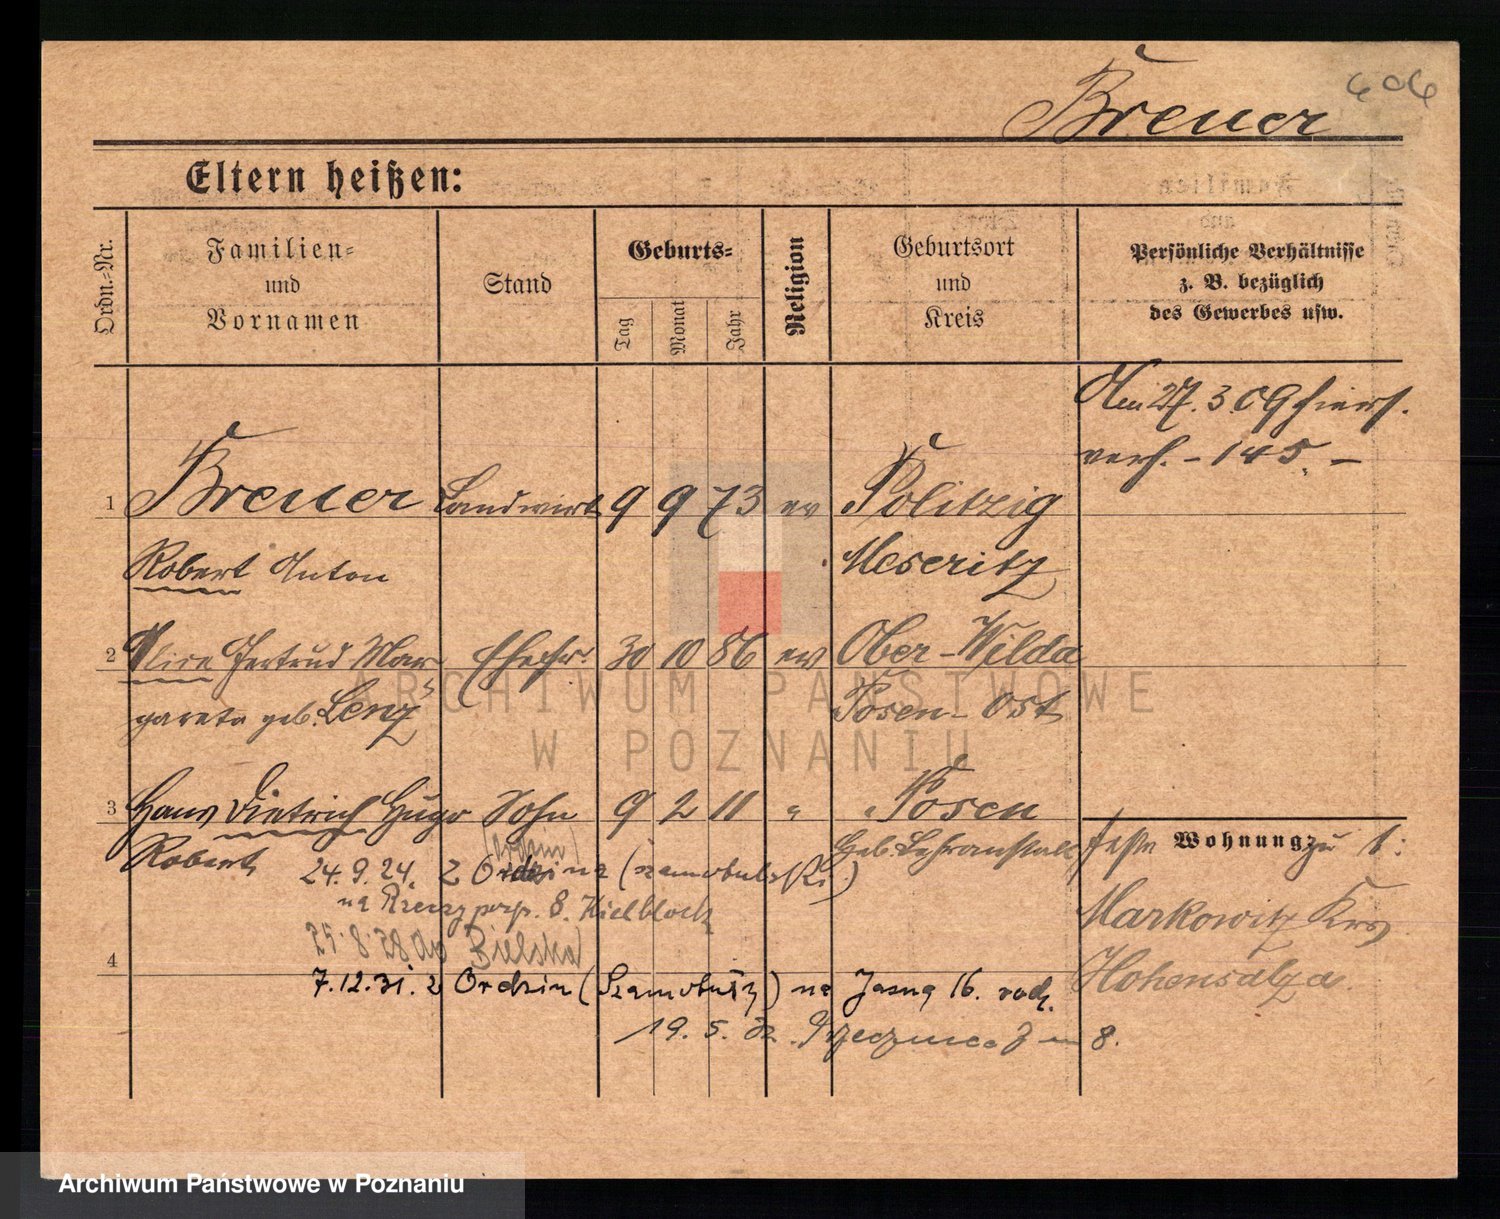 Breuer
Eltern heißen:
Ordn.=Nr.
Familien=
und
Vornamen
Stand
Geburts=
Tag
Monat
Jahr
Religion
Geburtsort
und
Kreis
Persönliche Verhältnisse
z. B. bezüglich
des Gewerbes usw.
27. 3. 09
verh. - 145. -
1 Breuer Landwirt 9 9 73 ev Politzig
Robert Anton Meseritz
2 Alice Gertrud Mar= Ehefr. 30 10 86 ev Ober-Wilda
gareta geb. Lenz Posen-Ost
3 Hans Dietrich Hugo Sohn 9 2 11 " Posen
Robert Geb. Lehranstalt
feste Wohnung zu 1:
24. 9. 24. z na
na 8. Kielblock
Markowitz Krs
Hohensalza.
4
7. 12. 31. z Ordzin (Szamotuły) na Jasną 16.
19. 5. 32. 8.
ARCHIWUM PAŃSTWOWE
W POZNANIU
Archiwum Państwowe w Poznaniu